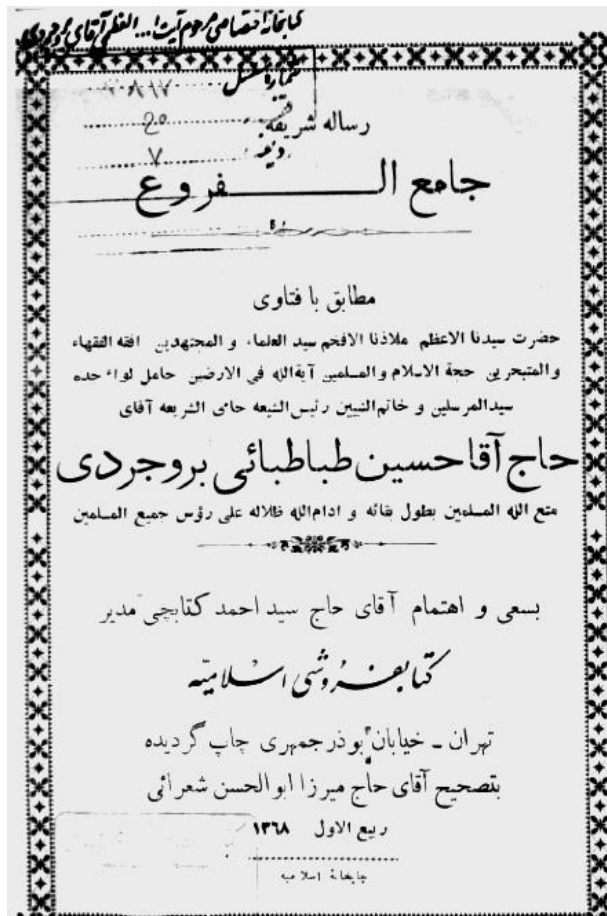 کتابخانه اختصاصی مرحوم آیت ا... العظمی آقای بروجردی
شماره مسلسل ۲۰۸۱۷
رساله شریفه
۲۵
ردیف ۷
جامع الفروع
مطابق با فتاوی
حضرت سیدنا الاعظم ملاذنا الافخم سید العلماء و المجتهدین افقه الفقهاء
والمتبحرین حجة الاسلام والمسلمین آیةالله فی الارضین حامل لواء جده
سیدالمرسلین و خاتم‌النبیین رئیس‌الشیعه حامی الشریعه آقای
حاج آقا حسین طباطبائی بروجردی
متع الله المسلمین بطول بقائه و ادام‌الله ظلاله علی رؤس جمیع المسلمین
بسعی و اهتمام آقای حاج سید احمد کتابچی مدیر
کتابفروشی اسلامیه
تهران - خیابان بوذرجمهری چاپ گردیده
بتصحیح آقای حاج میرزا ابوالحسن شعرائی
ربیع الاول ۱۳۶۸
چاپخانهٔ اسلامیه